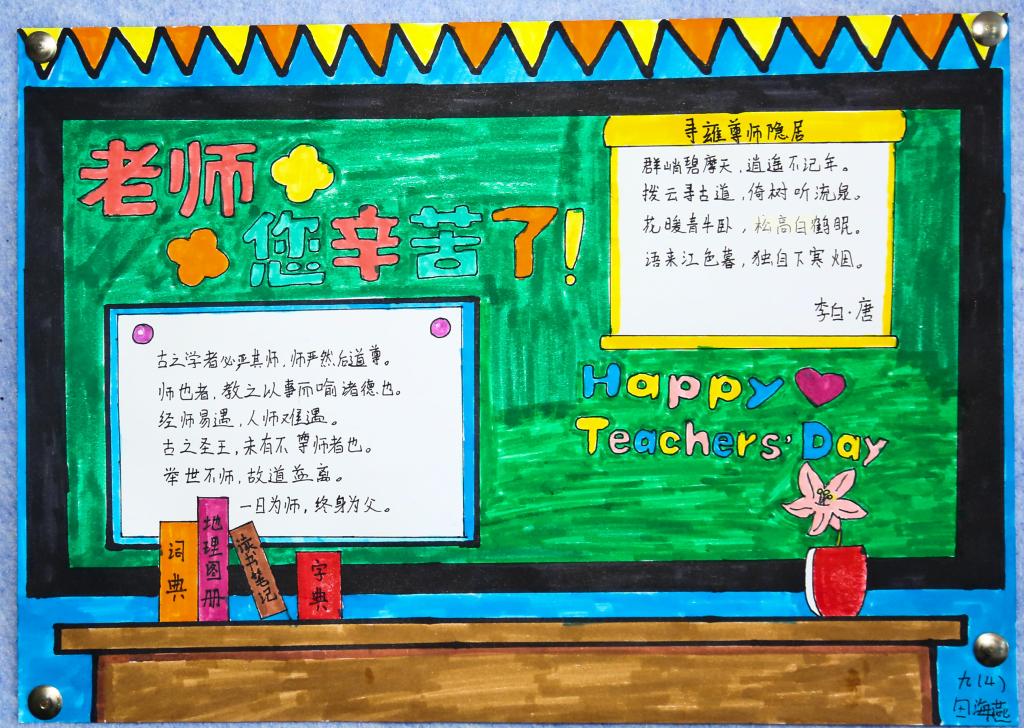 老师
您辛苦了!
寻雍尊师隐居
群峭碧摩天,逍遥不记年。
拨云寻古道,倚树听流泉。
花暖青牛卧,松高白鹤眠。
语来江色暮,独自下寒烟。
李白·唐
古之学者必严其师,师严然后道尊。
师也者,教之以事而喻诸德也。
经师易遇,人师难遇。
古之圣王,未有不尊师者也。
举世不师,故道益离。
一日为师,终身为父。
Happy
Teachers' Day
词典
地理图册
读书笔记
字典
九(4)
海燕